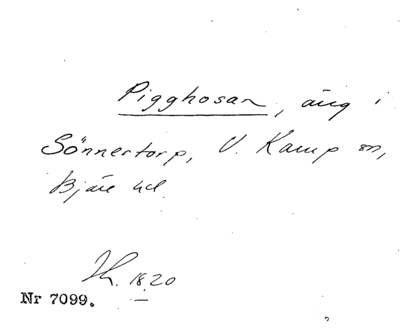 Pigghosan, äng i
Sönnertorp, V. Karup sn,
Bjäre hd.
18.20
Nr 7099.